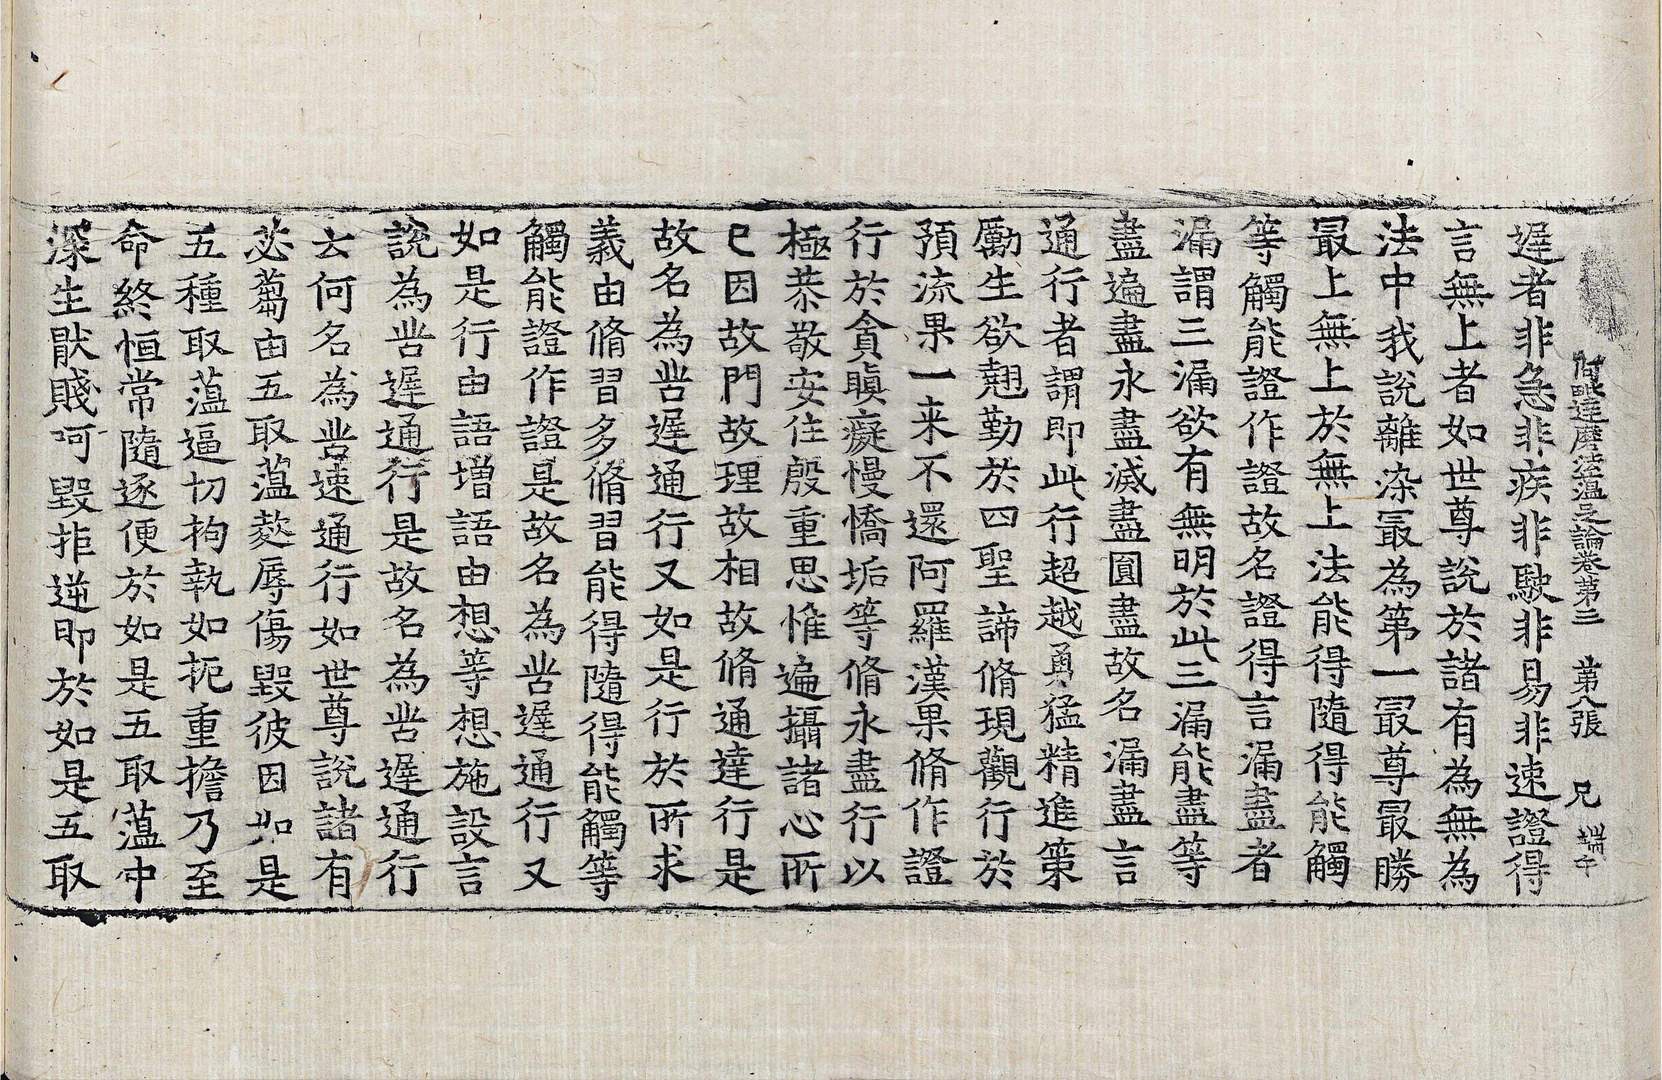 阿毗達磨法蘊足論卷第三 第八張 兄 端午
遟者非急非疾非駛非易非速證得
言無上者如世尊說於諸有為無為
法中我說離染㝡為第一㝡尊㝡勝
㝡上無上於無上法能得隨得能觸
等觸能證作證故名證得言漏盡者
漏謂三漏欲有無明於此三漏能盡等
盡遍盡永盡滅盡圓盡故名漏盡言
通行者謂即此行超越勇猛精進策
勵生欲翹勤於四聖諦脩現觀行於
預流果一来不還阿羅漢果脩作證
行於貪瞋癡慢憍垢等脩永盡行以
極恭敬安住殷重思惟遍攝諸心所
已因故門故理故相故脩通達行是
故名為苦遟通行又如是行於所求
義由脩習多脩習能得隨得能觸等
觸能證作證是故名為苦遟通行又
如是行由語增語由想等想施設言
說為苦遟通行是故名為苦遟通行
云何名為苦速通行如世尊說諸有
苾蒭由五取蘊麨辱傷毀彼因如是
五種取蘊逼切拘執如扼重擔乃至
命終恒常隨逐便於如是五取蘊中
深生猒賤呵毀拒逆即於如是五取